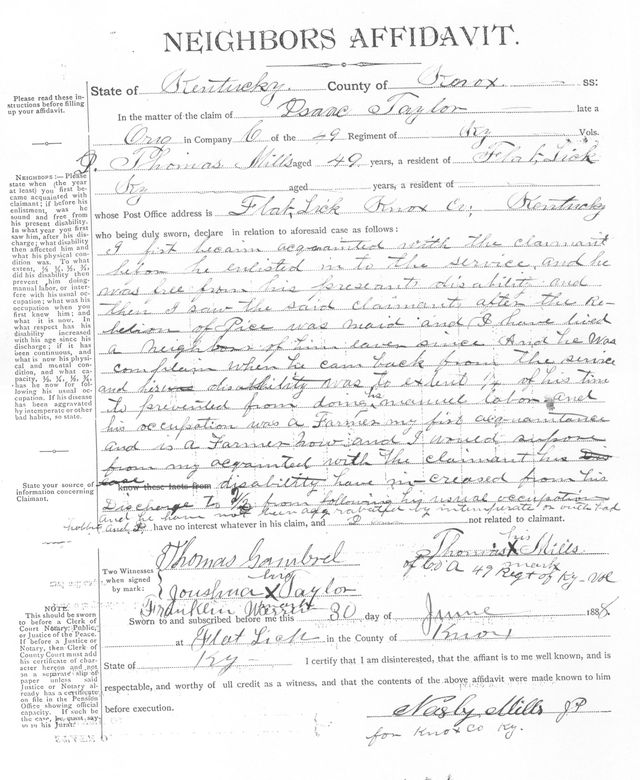 NEIGHBORS AFFIDAVIT.
Please read these instructions before filling up your affidavit.
State of Kentucky. County of Knox ss:
In the matter of the claim of Isaac Taylor late a
Orig in Company C of the 49 Regiment of Ky Vols.
I. Thomas Mills aged 49 years, a resident of Flat, Lick
Ky aged years, a resident of
whose Post Office address is Flat, Lick Knox Co, Kentucky
who being duly sworn, declare in relation to aforesaid case as follows:
I first becaim acquanted with the claimant
befour he enlisted in to the service and he
was free from his preseants disability and
then I saw the said claimant after the Re
belion of Pice was maid and I have lived
a neighbor of him ever since. And he was
complaun when he cam back from the service
and disability was to extent ½ of his time
its prevented from doing his manuel labor and
his occupation was a Farmer my first acquantance
and is a Farmer now and I would supose
from my acquanted with the claimant his
know these facts from disability have in creased from his
Discharge to ½ from following his usual occupation
and he have not been aggrabated by intemperat or outh bad
hobbits and I have no interest whatever in his claim, and I not related to claimant.
NEIGHBORS:—Please
state when (the year
at least) you first be-
came acquainted with
claimant; if before his
enlistment, was he
sound and free from
his present disability.
In what year you first
saw him, after his dis-
charge; what disability
then affected him and
what his physical con-
dition was. To what
extent, ¼, ½, ¾,
did his disability then
prevent him doing
manual labor, or inter-
fere with his usual oc-
cupation; what was his
occupation when you
first knew him; and
what it is now. In
what respect has his
disability increased
with his age since his
discharge; if it has
been continuous, and
what is now his physi-
cal and mental con-
dition, and what ca-
pacity,
has he now for fol-
lowing his usual oc-
cupation. If his disease
has been aggravated
by intemperate or other
bad habits, so state.
State your source of
information concerning
Claimant.
Thomas Gambrel
Two Witnesses
when signed
by mark:
Joushua X Taylor
Franklin
Thomas X Mills
his
mark
of Co A 49 Regt of Ky Vol
Sworn to and subscribed before me this 30 day of June 188
at Flat Lick in the County of Knox
State of Ky I certify that I am disinterested, that the affiant is to me well known, and is
respectable, and worthy of ull credit as a witness, and that the contents of the above affidavit were made known to him
before execution.
Mills JP
for Knox Co Ky.
NOTE.
This should be sworn
to before a Clerk of
Court Notary Public,
or Justice of the Peace.
If before a Justice or
Notary, then Clerk of
County Court must add
his certificate of char-
acter hereon and not
on a separate slip of
paper unless said
Justice or Notary al-
ready has a certificate
on file in the Pension
Office showing official
capacity. If such be
the case, he must say
so in his Jurat.